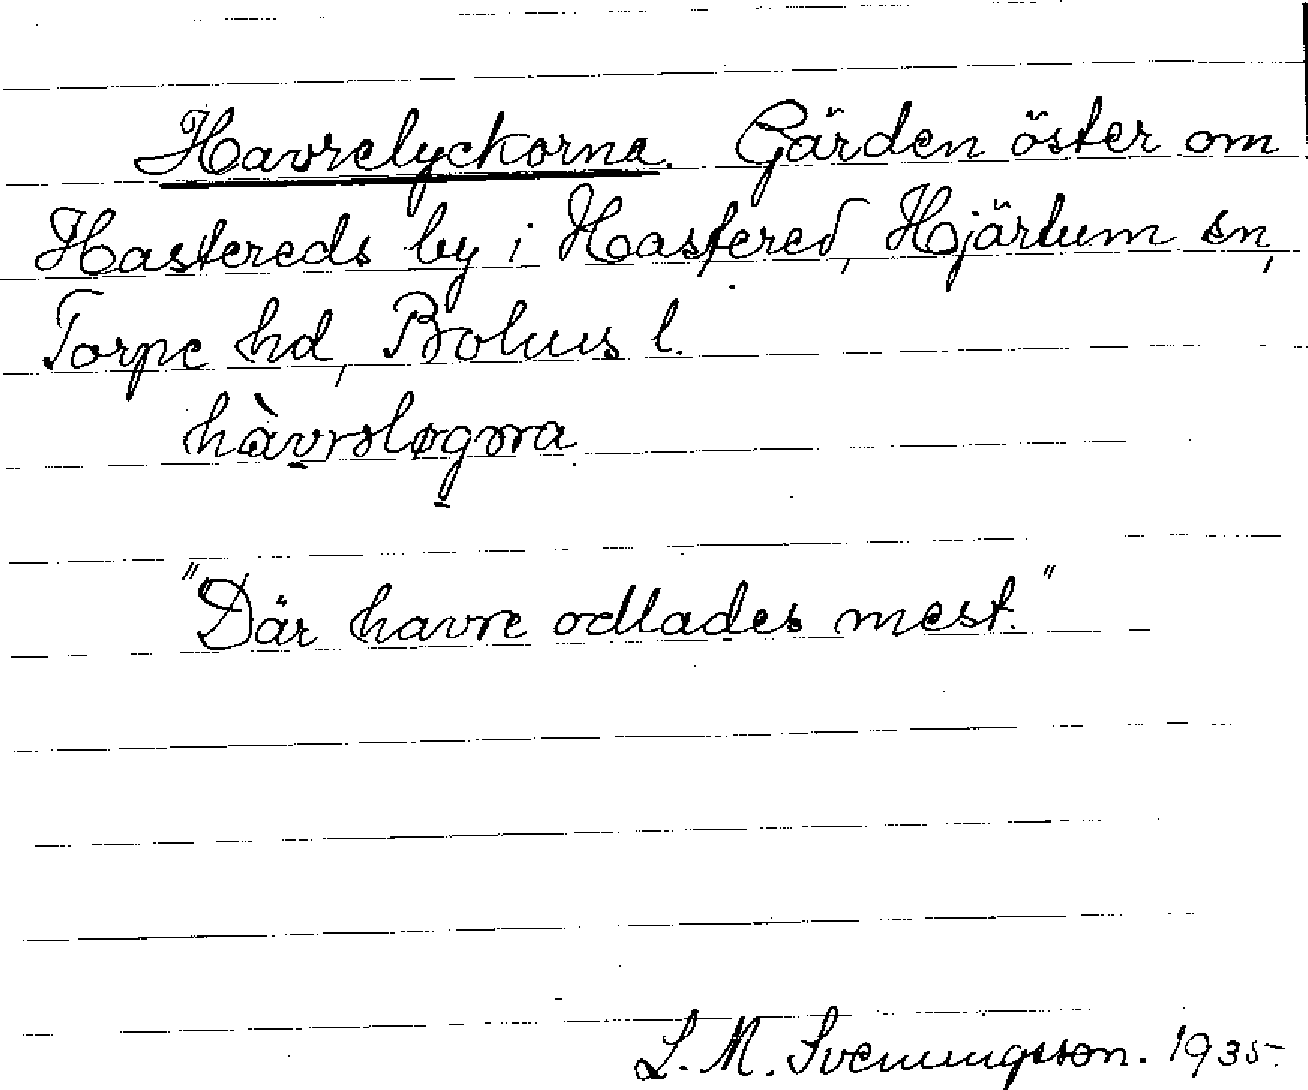 Havrelyckorna. Gärden öster om
Hastereds by i Hastered, Hjärtum sn,
Torpe hd, Bohus l.
"Där havre odlades mest."
L. M. Svenningsson. 1935.